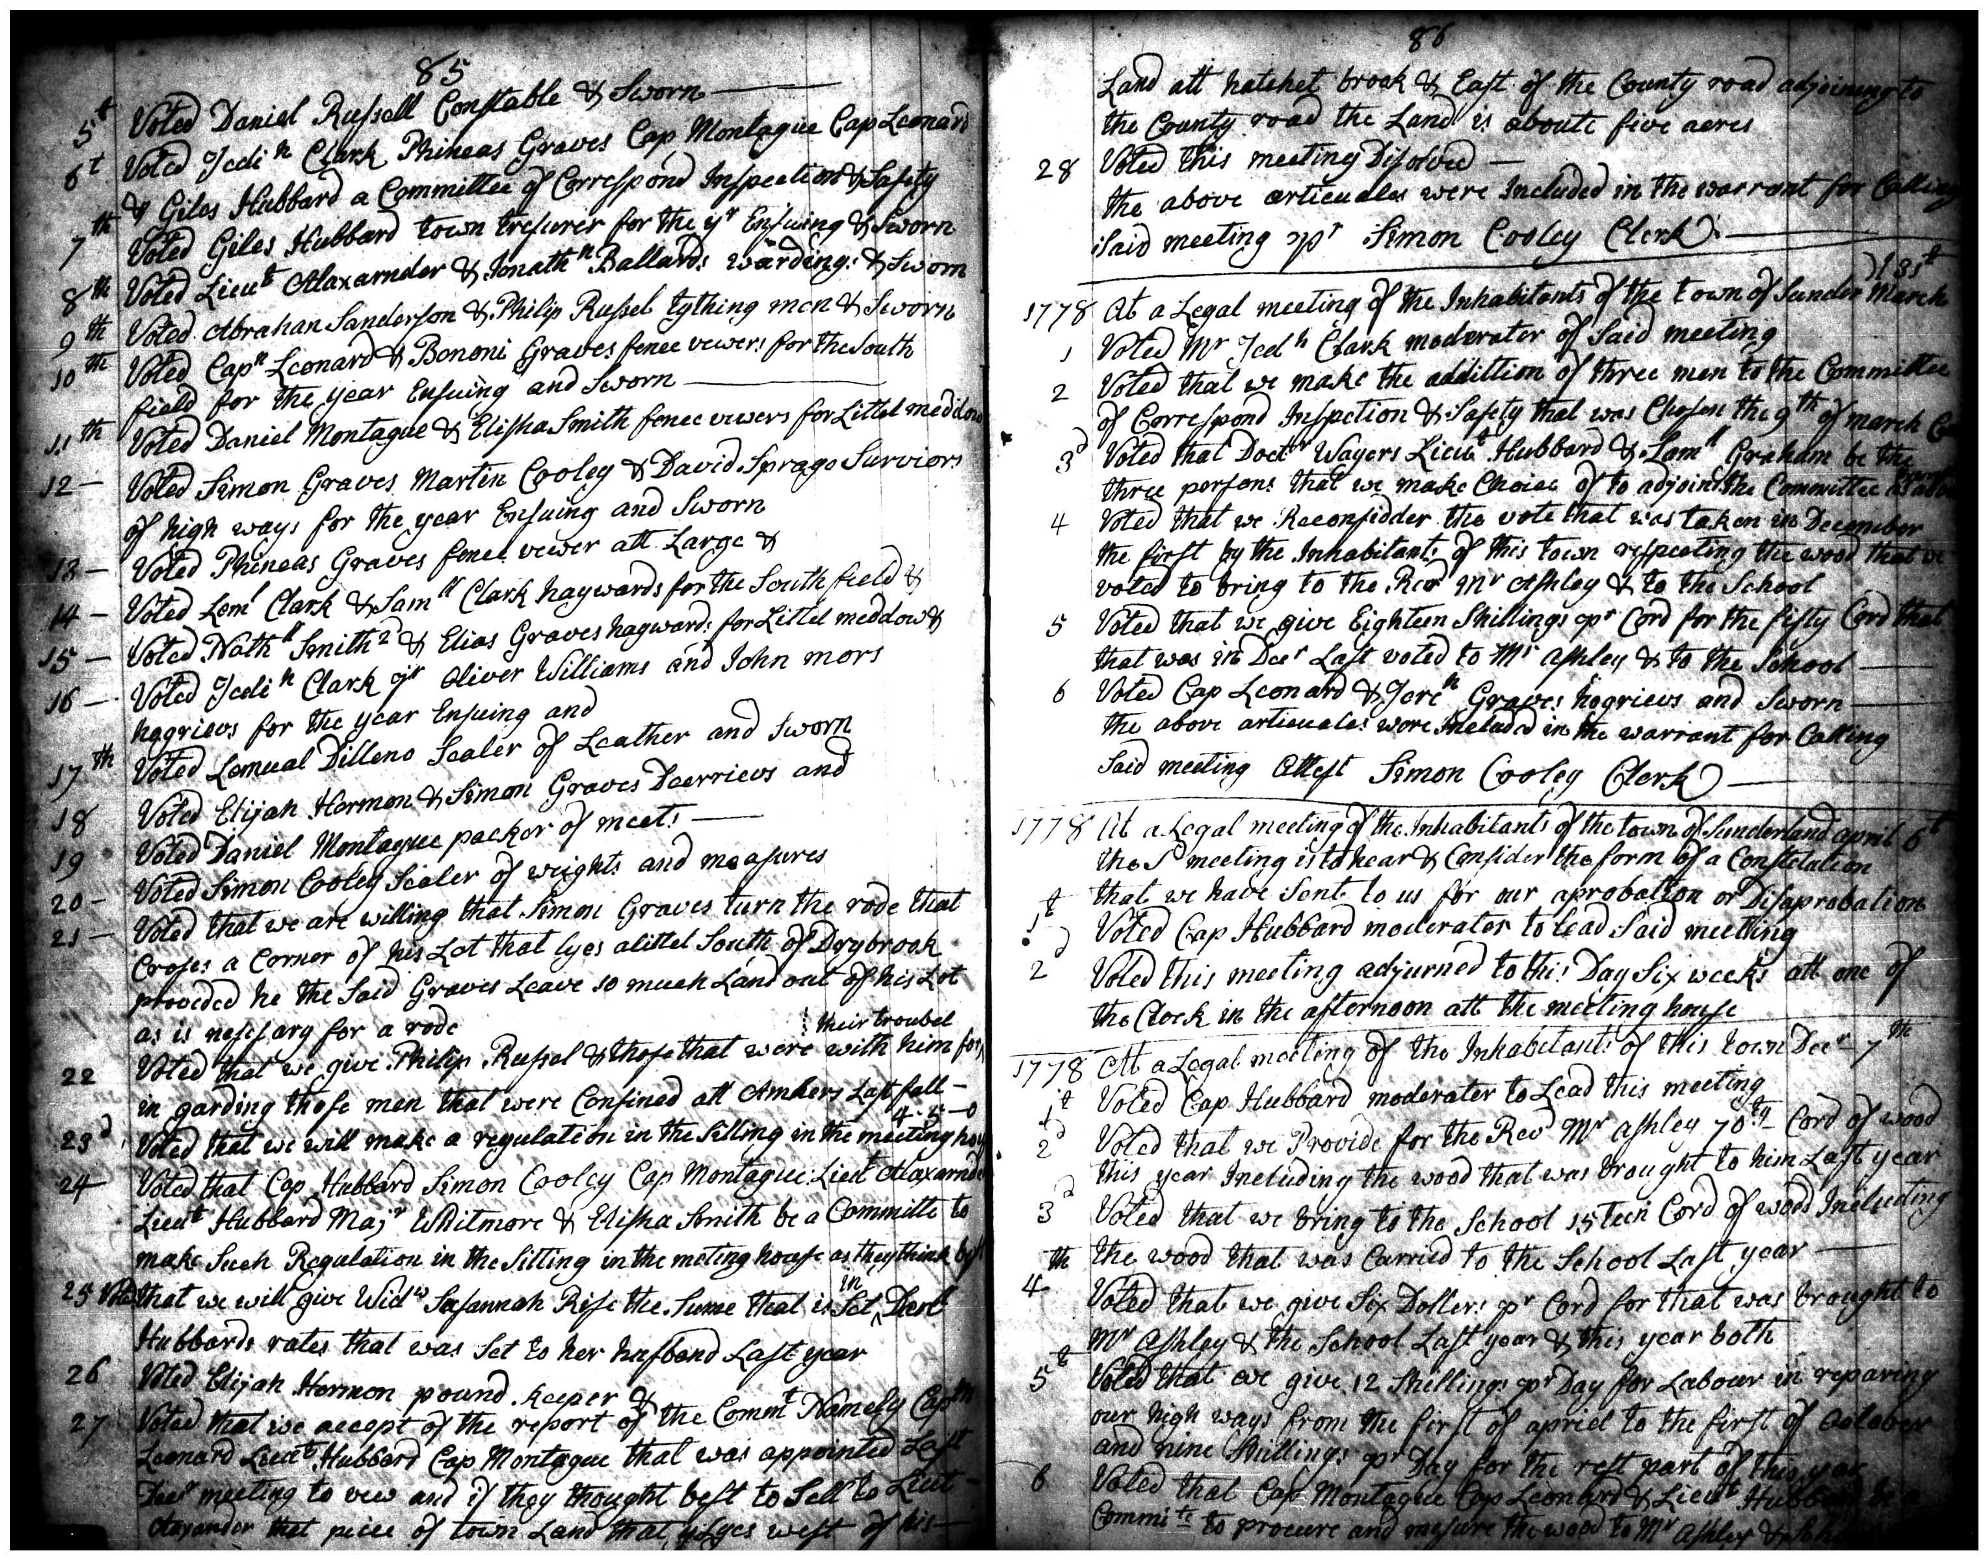 85
5t Voted Daniel Russell Constable & Sworn
6t Voted Jedin Clark Phineas Graves Cap Montague Cap Leonard
& Giles Hubbard a Committee of Correspond Inspection & Safety
7th Voted Giles Hubbard town tresurer for the yr Ensuing & Sworn
8th Voted Lieut Alaxarnder & Jonathn Ballard: wardings: & Sworn
9th Voted Abrahan Sanderson & Philip Russel tything men & Sworn
10th Voted Capn Leonard & Bononi Graves fence vewers for the South
field for the year Ensuing and Sworn
11th Voted Daniel Montague & Elisha Smith fence vewers for Littel meddow
12 Voted Simon Graves Martin Cooley & David Sprage Surviors
of high ways for the year Ensuing and Sworn
13 Voted Phineas Graves fence vewer att Large &
14 Voted Leml Clark & Samll Clark haywards for the South field &
15 Voted Nathll Smith 2d & Elias Graves haywards for Littel meddow &
16 Voted Jedin Clark jr Oliver Williams and John mors
hogrievs for the year Ensuing and
17th Voted Lemual Dilleno Sealer of Leather and Sworn
18 Voted Elijah Hermon & Simon Graves Deerrievs and
19 Voted Daniel Montague packer of meets
20 Voted Simon Cooley Sealer of weights and measures
21 Voted that we are willing that Simon Graves turn the rode that
Croses a Corner of his Lot that lyes a littel South of Drybrook
proveded he the Said Graves Leave so much Land out of his Lot
as is nessary for a rode
their troubel
22 Voted that we give Philip Russel & those that were with him for
in garding those men that were Confined att Amhers Last fall
4-8-0
23d Voted that we will make a regulation in the Silling in the meeting hous
24 Voted that Cap Hubbard Simon Cooley Cap Montague Lieut Alaxarnde
Lieut Hubbard Majr Whitmore & Elisha Smith be a Committe to
make Such Regulation in the Sitting in the meting house as they think best
in
25 Voted that we will give Widw Susannah Rise the Sume that is Set Decl
Hubbards rates that was Set to her husband Last year
26 Voted Elijah Hermon pound keeper &
27 Voted that we accept of the report of the Commt Namely Capn
Leonard Lieut Hubbard Cap Montague that was appointed Last
meeting to vew and if they thought best to Sell to Lieut
Alaxander that peice of town Land that lyes west of his
86
Land att hatchet brook & East of the County road adjoining to
the County road the Land is aboute five acres
28 Voted this meeting Disolved
the above articuales were Included in the warrant for Calling
Said meeting pr Simon Cooley Clerk
1778 At a Legal meeting of the Inhabitants of the town of Sunder March 31st
1 Voted Mr Jedh Clark moderater of Said meeting
2 Voted that we make the addittion of three men to the Committee
of Correspond Inspction & Safety that was Chosen the 9th of march
3d Voted that Doctr Wayers Lieut Hubbard & Samll Graham be the
three persons that we make Choice of to adjoin the Committee
4 Voted that we Reconsidder the vote that was taken in December
the first by the Inhabitants of this town respecting the wood that we
voted to bring to the Revd Mr Ashley & to the School
5 Voted that we give Eighteen Shillings pr Cord for the fifty Cord that
that was in Decr Last voted to Mr Ashley & to the School
6 Voted Cap Leonard & Jereh Graves hogrievs and Sworn
the above articuales were Included in the warrant for Calling
Said meeting Attest Simon Cooley Clerk
1778 At a Legal meeting of the Inhabitants of the town of Sunderland april 6t
the Sd meeting is to hear & Consider the form of a Constetution
that we have Sent to us for our aprobation or Disaprobation
1t Voted Cap Hubbard moderater to lead Said meetting
2d Voted this meeting adjurned to this Day Six weeks att one of
the Clock in the afternoon att the meeting house
1778 At a Legal meeting of the Inhabitants of this town Decr 7th
1t Voted Cap Hubbard moderater to Lead this meeting
2d Voted that we Provide for the Revd Mr Ashley 70ty Cord of wood
this year Including the wood that was brought to him Last year
3d Voted that we bring to the School 15teen Cord of wood Including
the wood that was Carried to the School Last year
4th Voted that we give Six Dollers pr Cord for that was brought to
Mr Ashley & the School Last year & this year both
5t Voted that we give 12 Shillings pr Day for Labour in reparing
our high ways from the first of apriel to the first of October
and nine Shillings pr Day for the rest part of this year
6 Voted that Cap Montague Cap Leonard & Lieut Hubbard be
Commite to procure and mesure the wood to Mr Ashley &